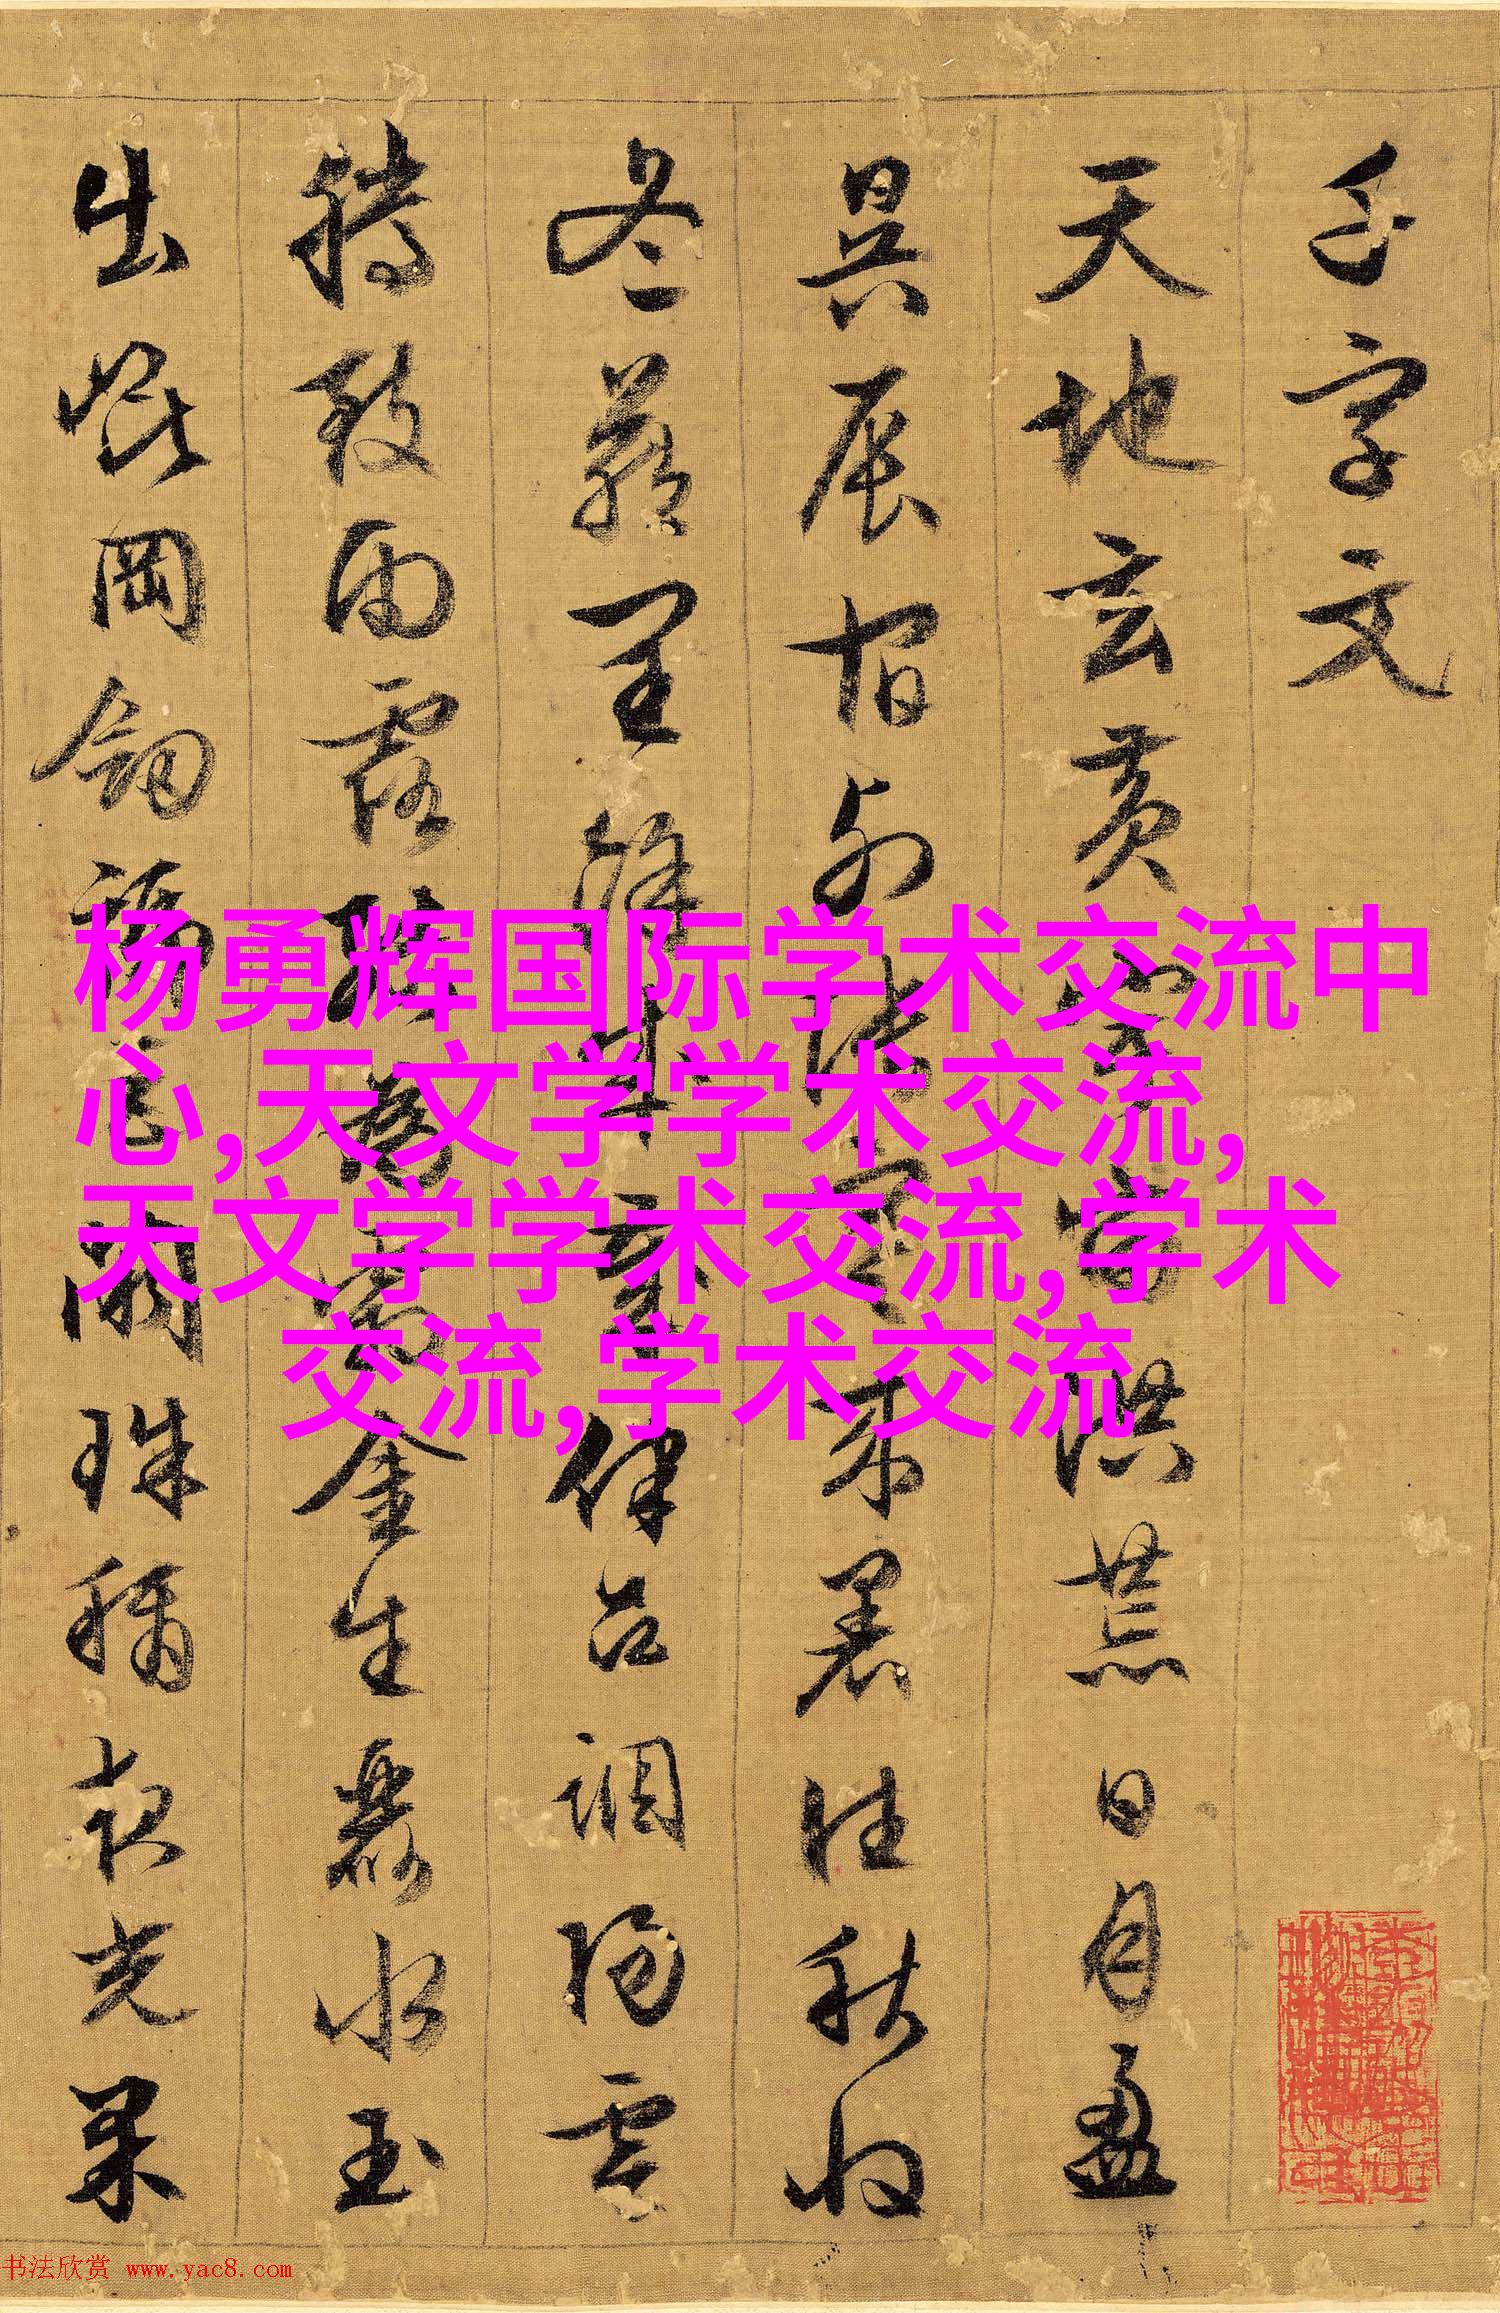 千字文
天地玄黄宇宙洪荒日月盈
昃辰宿列張寒来暑往秋收
冬藏閏餘成歲律吕調陽雲
騰致雨露結為霜金生麗水玉
出崐岡劒號巨闕珠稱夜光果
杨勇辉国际学术交流中
心,天文学学术交流,
天文学学术交流,学术
交流,学术交流
书法欣赏 www.yac8.com